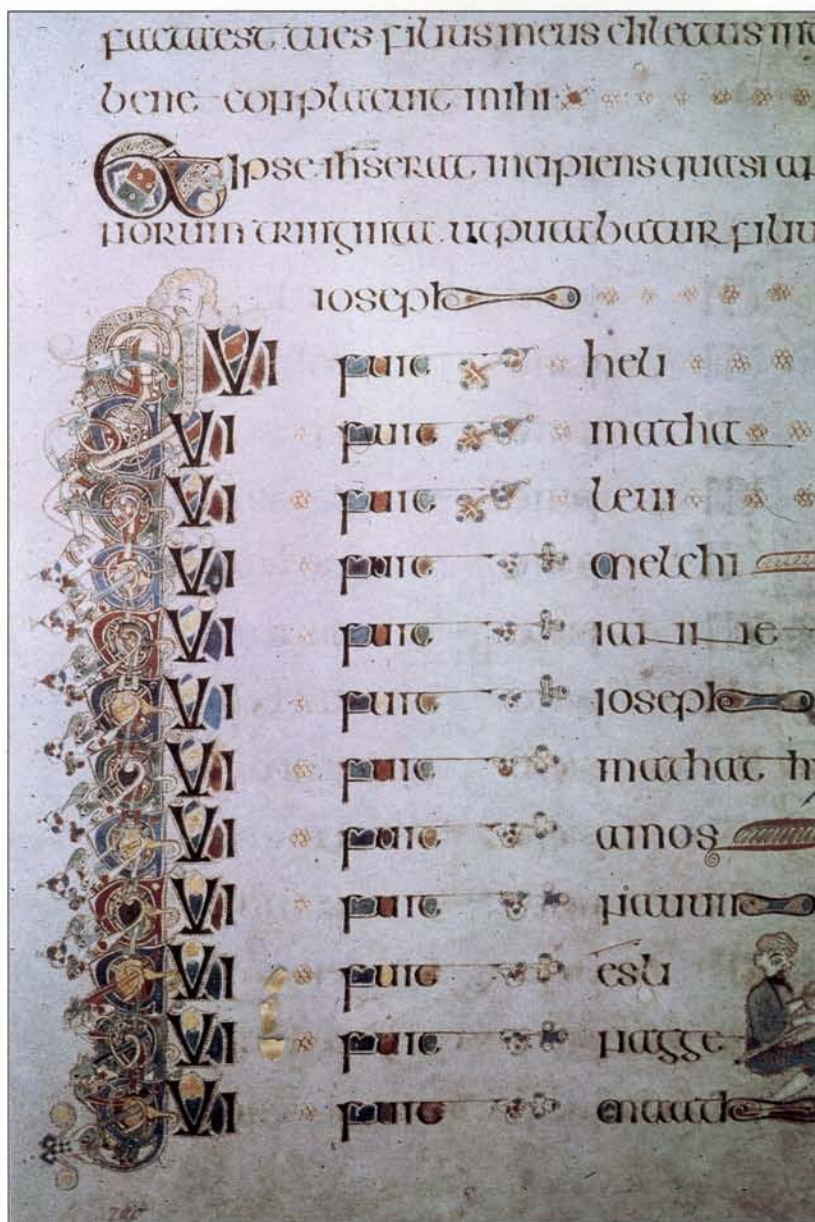 facta est tu es filius meus dilectus in
bene complacuit mihi
Et ipse ihs erat incipiens quasi an
norum triginta ut putabatur filiu
ioseph
QVI fuit heli
QVI fuit matha
QVI fuit leui
QVI fuit melchi
QVI fuit
QVI fuit ioseph
QVI fuit mathath
QVI fuit amos
QVI fuit naum
QVI fuit esli
QVI fuit nagge
QVI fuit maath